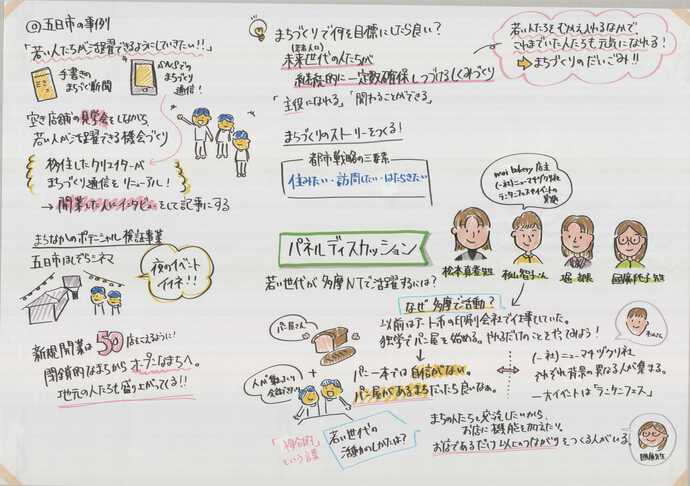 ◎五日市の事例
「若い人たちが活躍できるようにしていきたい!!」
手書きの
まちづくり新聞
SNSでの
まちづくり
通信!
空き店舗の見学会をしながら、
若い人が活躍できる機会づくり
移住したクリエイターが
まちづくり通信をリニューアル!
→開業した人にインタビューをして記事にする
まちなかのポテンシャル検証事業
五日市ほしぞらシネマ
夜のイベント
イイネ!!
新規開業は50店をこえるように!
閉鎖的なまちから オープンなまちへ。
地元の人たちも盛り上がってくる!!
まちづくりで何を目標にしたら良い?
未来世代の人たちが
継続的に一定数確保しつづけるしくみづくり
「主役になれる」「関わることができる」
まちづくりのストーリーをつくる!
都市戦略の三要素
住みたい・訪問したい・はたらきたい
若い人たちをむかえ入れるなかで、
これまでいた人たちも元気になれる!
➡まちづくりのだいごみ!!
パネルディスカッション
若い世代が多摩NTで活躍するには?
店主
(一社)ニューマチヅクリ社
松本真澄先生
杉山智子さん
先生
なぜ多摩で活動?
以前は 市の印刷会社で仕事していた。
独学でパン屋を始める。やれるだけのことをやってみよう!
パン屋さん
人が集まり
+
パン一本では自信がない。
パン屋があるまちだったら良いなぁ。
(一社)ニューマチヅクリ社
それぞれ背景の異なる人が集まる。
一大イベントは「ラニタニフェス」
「
という言葉
若い世代の
活動のしかたは?
まちの人たちと交流したいから、
お店に機能を加えたり。
お店であるだけ以上のつながりをつくる人がいる。
先生